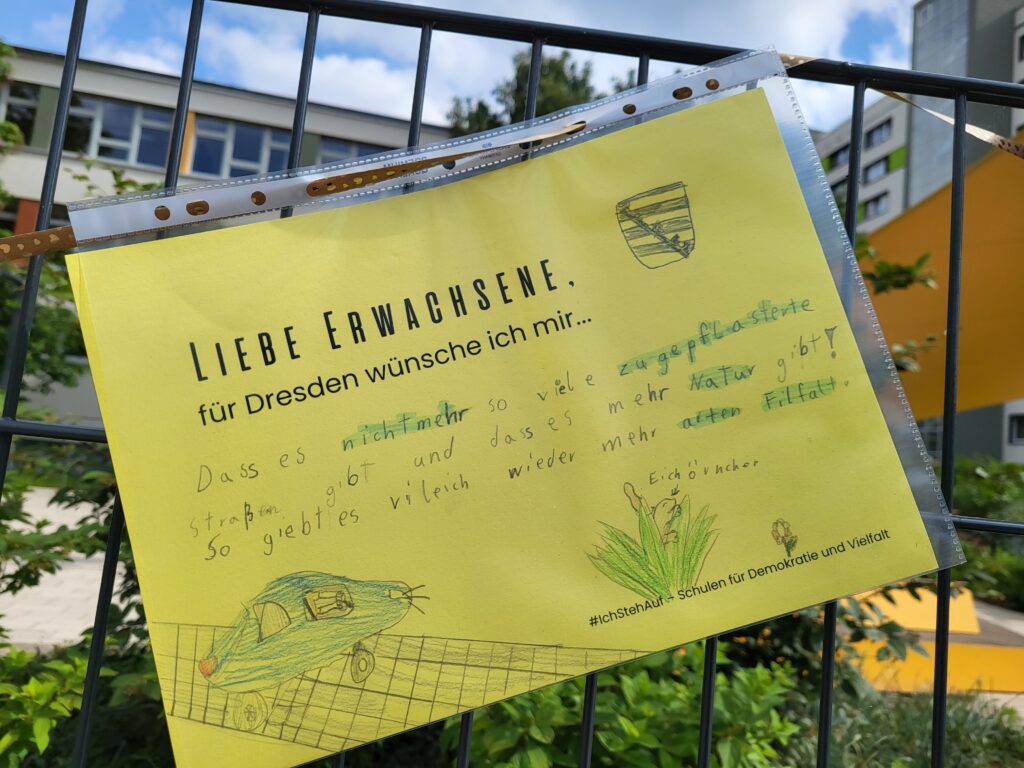 LIEBE ERWACHSENE,
für Dresden wünsche ich mir...
Dass es nichtmehr so viele zugepflasterte
straßen gibt und dass es mehr Natur gibt!
So giebt es vileich wieder mehr arten Filfalt.
Eichörncher
#IchStehAuf – Schulen für Demokratie und Vielfalt